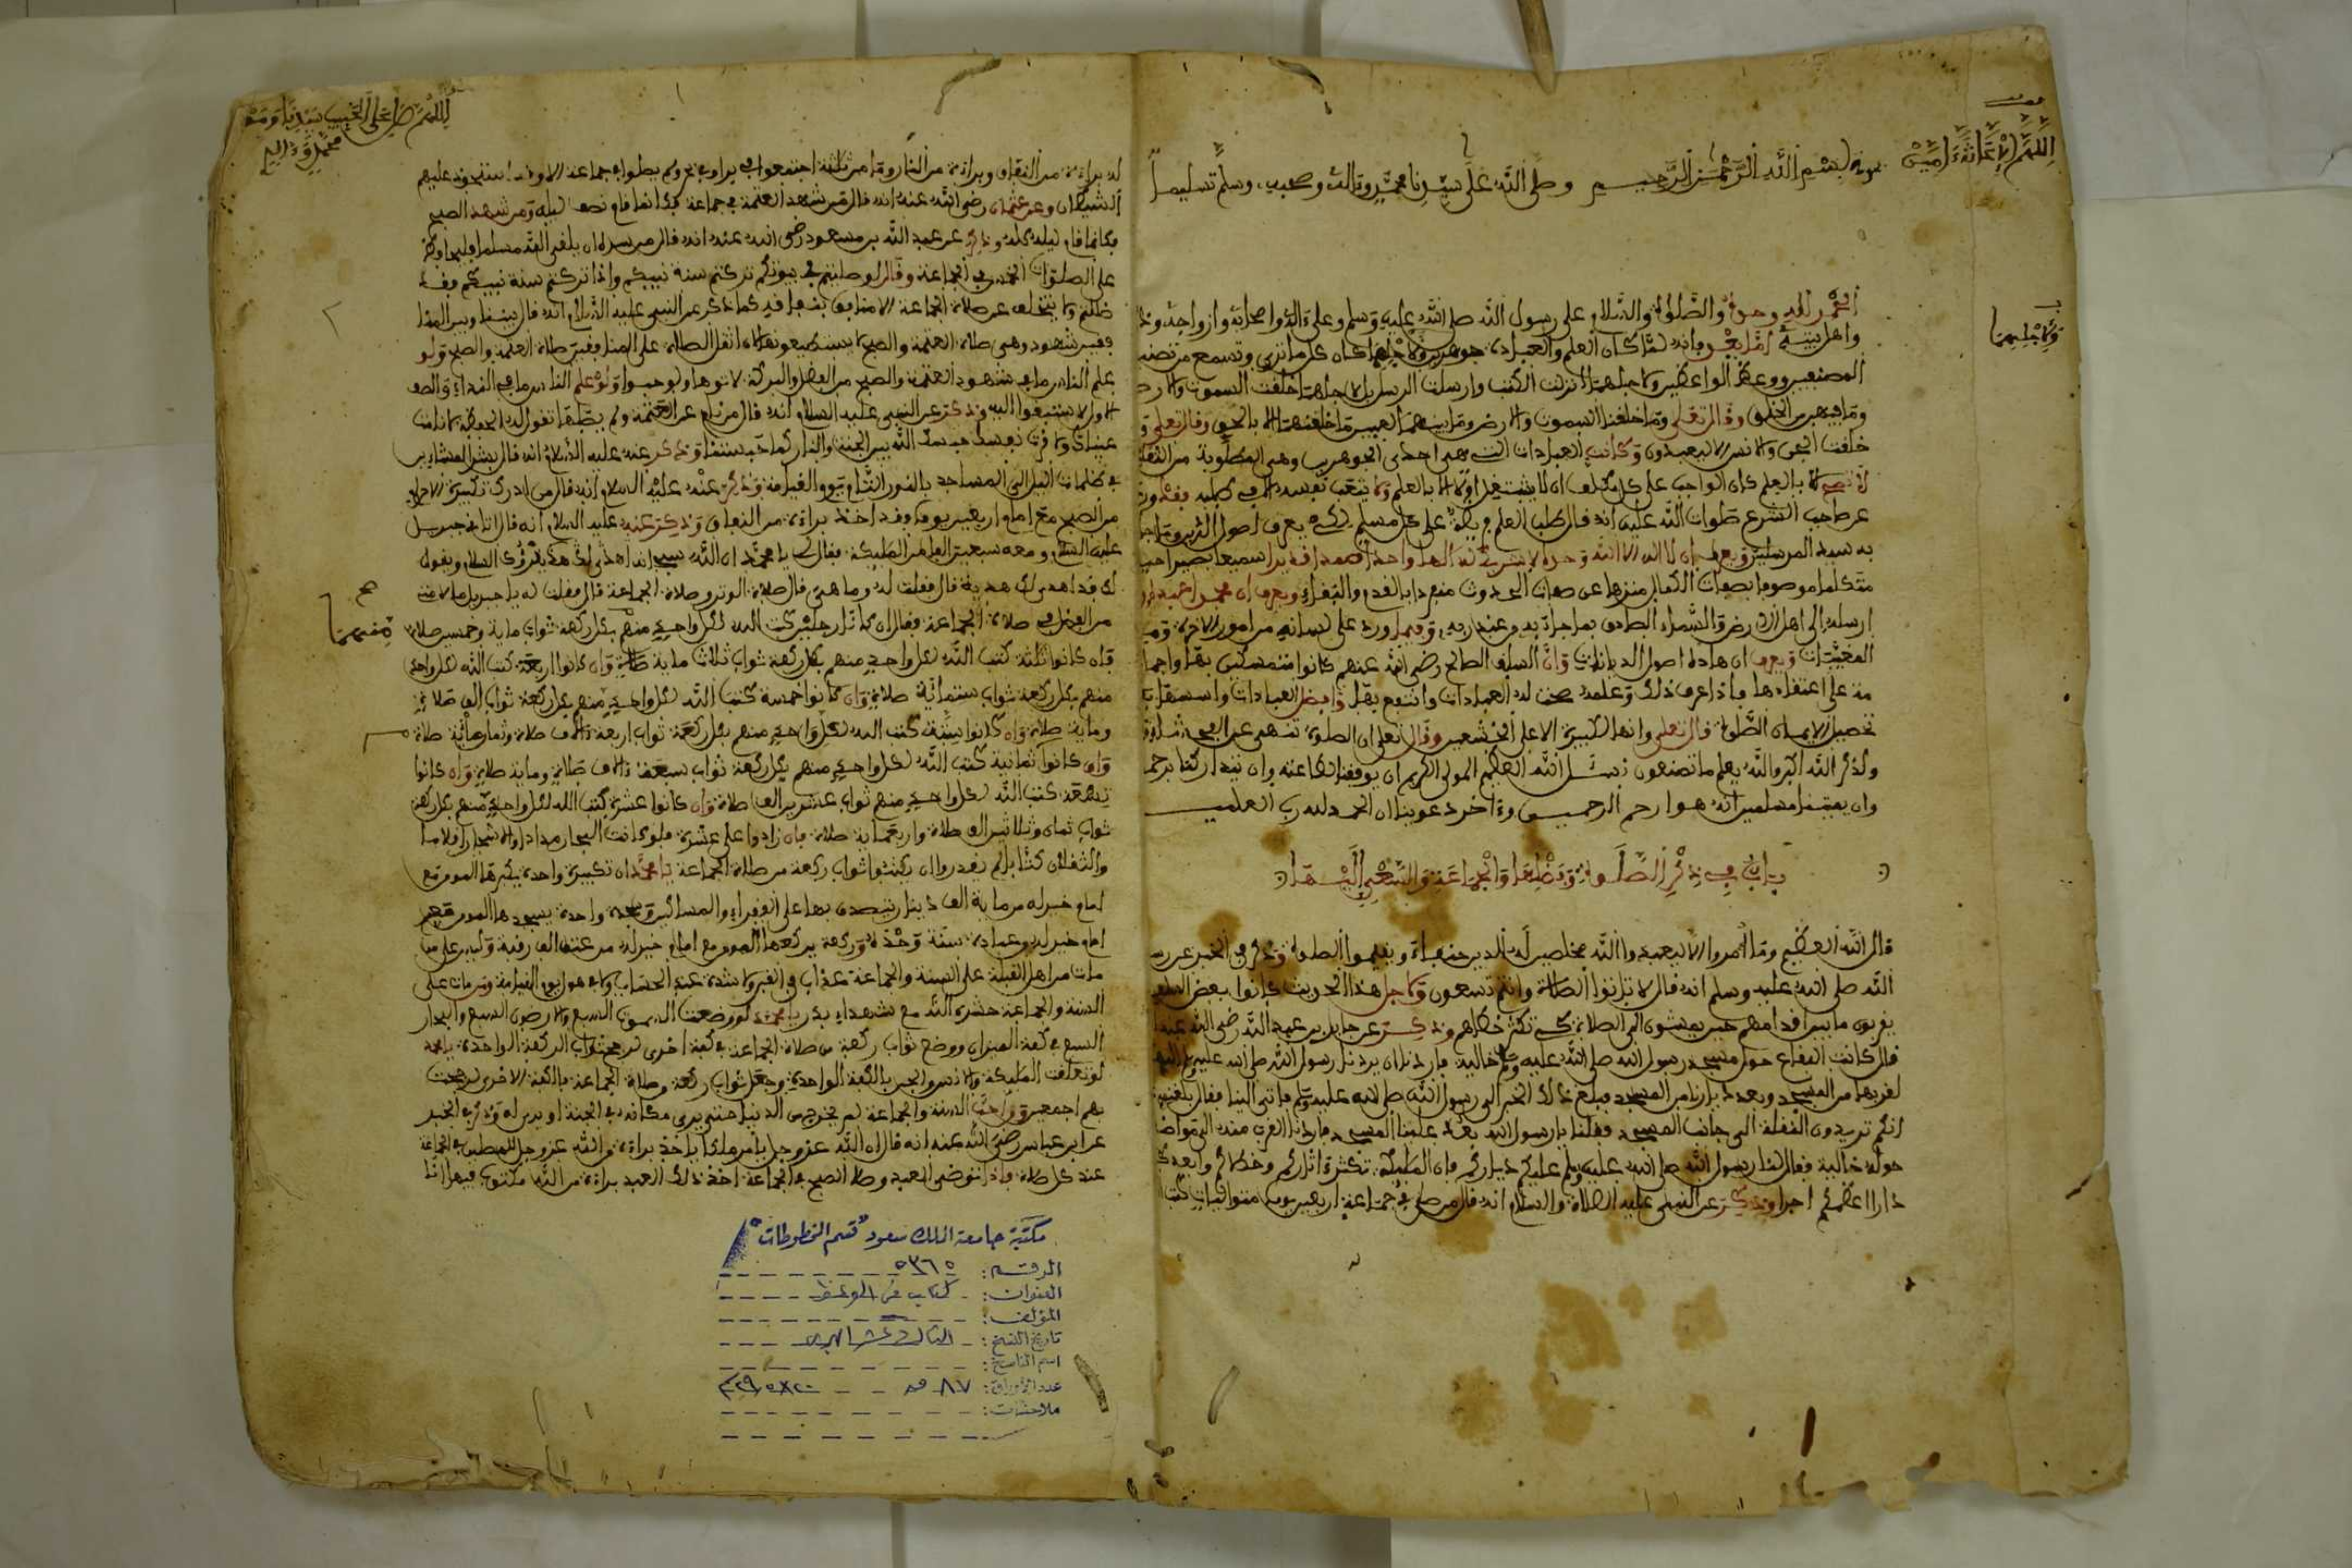 اللهم الإعانة ءامين
بسم الله الرحمن الرحيم وصلى الله على سيدنا محمد وءاله وصحبه وسلم تسليما
الحمد لله وحده والصلوة والسلام على رسول الله صلى الله عليه وسلم وعلى ءاله واصحابه وازواجه
واهل بيته اما بعد فإنه لما كان العلم والعبادة جوهرين ولاجلهما كان كل ما ترى وتسمع من تصنيف
المصنفين ووعظ الواعظين ولاجلهما انزلت الكتب وارسلت الرسل بل لاجلهما خلقت السموت والارض
وما فيهن من الخلق وقال تعلى وما خلقنا السموت والارض وما بينهما لعبين ما خلقنهما الا بالحق وقال تعلى
خلقت الجن والانس الا ليعبدون وكانت العبادات التي هي احدى الجوهرين وهي المطلوبة من الثقلين
لا تصح الا بالعلم كان الواجب على كل مكلف ان لا يشتغل اولا الا بالعلم ولا يتعب نفسه الا في طلبه
عن صاحب الشرع صلوات الله عليه انه قال طلب العلم فريضة على كل مسلم
به سيد المرسلين ويعرف ان لا اله الا الله وحده لا شريك له الها واحدا صمدا قديرا سميعا بصيرا
متكلما موصوفا بصفات الكمال منزها عن صفات الحدوث منفردا بالقدم والبقاء ويعرف ان محمدا عبده
ارسله الى اهل الارض والسماء الصادق بما جاء به من عند ربه وفيما ورد على لسانه من امور الاخرة
المغيبات ويعرف ان هاذه اصول الديانات وان السلف الصالح رضي الله عنهم كانوا متمسكين بها
على اعتقادها فإذا عرف ذلك وعلمه صحت له العبادات وانتفع بها
قال تعلى وانها لكبيرة الا على الخشعين وقال تعلى ان الصلوة تنهى عن الفحشاء
ولذكر الله اكبر والله يعلم ما تصنعون نسئل الله العظيم المولى الكريم ان يوفقنا لطاعته وان يتداركنا برحمته
وان يميتنا مسلمين انه هو ارحم الرحمين وءاخر دعوينا ان الحمد لله رب العلمين
باب في ذكر الصلوة وفضلها والجماعة والسعي اليها
قال الله العظيم وما أمروا الا ليعبدوا الله مخلصين له الدين حنفاء ويقيموا الصلوة وذكر في الخبر عن رسول
الله صلى الله عليه وسلم انه قال لا تاتوا الصلاة وانتم تسعون ولاجل هذا الحديث كانوا بعض السلف
يقربون ما بين اقدامهم حين يمشون الى الصلاة كي تكثر خطاهم وذكر عن جابر بن عبد الله رضي الله عنه
قال كانت البقاع حول مسجد رسول الله صلى الله عليه وسلم خالية فاردنا ان يردنا رسول الله صلى الله عليه وسلم اليها
لقربها من المسجد وبعد ديارنا من المسجد فبلغ ذلك الخبر الى رسول الله صلى الله عليه وسلم فأتى الينا فقال بلغني
انكم تريدون النقلة الى جانب المسجد فقلنا يا رسول الله بعد علينا المسجد فاردنا القرب منه
حوله خالية فقال لنا رسول الله صلى الله عليه وسلم عليكم دياركم فإن الملئكة تكثر اثاركم وخطاكم وابعدكم
دارا اعظمكم اجرا وذكر عن النبي عليه الصلاة والسلام انه قال من صلى في جماعة اربعين يوما متواليات كتب
ولاجلهما
اللهم صل على الحبيب سيدنا ومولنا
محمد وءاله
له براءة من النفاق وبراءة من النار وما من ثلاثة اجتمعوا في ولم يصلوا في جماعة الا وقد استحوذ عليهم
الشيطان وعن عثمان رضي الله عنه انه قال من شهد العتمة في جماعة فكأنما قام نصف ليله ومن شهد الصبح
فكانما قام ليله كله وذكر عن عبد الله بن مسعود رضي الله عنه انه قال من سره ان يلقى الله مسلما فليحافظ
على الصلوات الخمس في الجماعة وقال لو صليتم في بيوتكم تركتم سنة نبيكم واذا تركتم سنة نبيكم فقد
ضللتم ولا يتخلف عن صلاة الجماعة الا منافق كما ذكر عن النبي عليه السلام انه قال بيننا وبين
المنافقين شهود وهي صلاة العتمة والصبح لا يستطيعونهما اثقل الصلاة على المنافقين صلاة العتمة والصبح ولو
علم الناس ما في شهود العتمة والصبح من الفضل والبركة لاتوها ولو حبوا ولو علم الناس ما في النداء والصف
الاول لاستبقوا اليه وذكر عن النبي عليه السلام انه قال من نام عن العتمة ولم يصلها تقول له الحفظة لا نامت
عيناك ذكر عنه عليه السلام انه قال بشر المشاءين
في ظلمات الليل الى المساجد بالنور التام يوم القيامة وذكر عنه عليه السلام انه قال من ادرك تكبيرة الاحرام
من الصبح مع امام اربعين يوما وقد اخذ براءة من النفاق وذكر عنه عليه السلام انه قال اتاني جبريل
عليه السلام ومعه سبعين الفا من الملئكة فقال لي يا محمد ان الله يقرؤك السلام ويقول
لك قد اهدى لك هدية قال فقلت له وما هي قال صلاة الوتر وصلاة الجماعة قال فقلت له يا جبريل ما لامتي
من الفضل في صلاة الجماعة فقال ان كانا رجلين كتب الله لكل واحد منهم بكل ركعة ثواب ماية وخمسين صلاة
فإن كانوا ثلثة كتب الله لكل واحد منهم بكل ركعة ثواب ثلاث ماية صلاة وان كانوا اربعة كتب الله لكل واحد
منهم بكل ركعة ثواب ستمائة صلاة وان كانوا خمسة كتب الله لكل واحد منهم بكل ركعة ثواب الف صلاة
وماية صلاة وان كانوا ستة كتب الله لكل واحد منهم بكل ركعة ثواب اربعة ءالاف صلاة وثمان مائة صلاة
وان كانوا ثمانية كتب الله لكل واحد منهم بكل ركعة ثواب تسعة ءالاف صلاة وماية صلاة وان كانوا
تسعة كتب الله لكل واحد منهم ثواب عشرين الف صلاة وان كانوا عشرة كتب الله لكل واحد منهم بكل ركعة
ثواب ثمان وثلاثين الف صلاة واربعماية صلاة فإن زادوا على عشرة فلو كانت البحار مدادا والاشجار اقلاما
والثقلان كتابا لم يقدروا ان يكتبوا ثواب ركعة من صلاة الجماعة يا محمد ان تكبيرة واحدة يكبرها المومن مع
امام خير له من ماية الف دينار يتصدق بها على الفقراء والمساكين وسجدة واحدة يسجدها المومن مع
امام خير له من عبادة سنة وركعة يركعها المومن مع امام خير له من عتق الف رقبة وليس على من
مات من اهل القبلة على السنة والجماعة عذاب في القبر ولا شدة عند الحساب ولا هول يوم القيامة ومن مات على
السنة والجماعة حشره الله مع شهداء بدر يا محمد لو وضعت السموت السبع والارضون السبع والبحار
السبع في كفة الميزان ووضع ثواب ركعة من صلاة الجماعة في كفة اخرى لرجح ثواب الركعة الواحدة يا محمد
بهم اجمعين السنة والجماعة لم يخرج من الدنيا حتى يرى مكانه في الجنة او يرى له وذكر في الخبر
عن ابن عباس رضي الله عنه انه قال ان الله عز وجل يأمر ملكا يأخذ براءة من الله عز وجل للمصلين في الجماعة
عند كل صلاة فإذا توضى العبد وصلى الصبح في الجماعة اخذ ذلك العبد براءة من الله مكتوب فيها انا
صح
منهما
مكتبة جامعة الملك سعود "قسم المخطوطات"
الرقم: ٥٣٦٥
العنوان: كتاب في الوعظ
المؤلف:
تاريخ النسخ: الثالث عشر الهجري
اسم الناسخ:
عدد الأوراق: ٨٧ ق
ملاحظات: